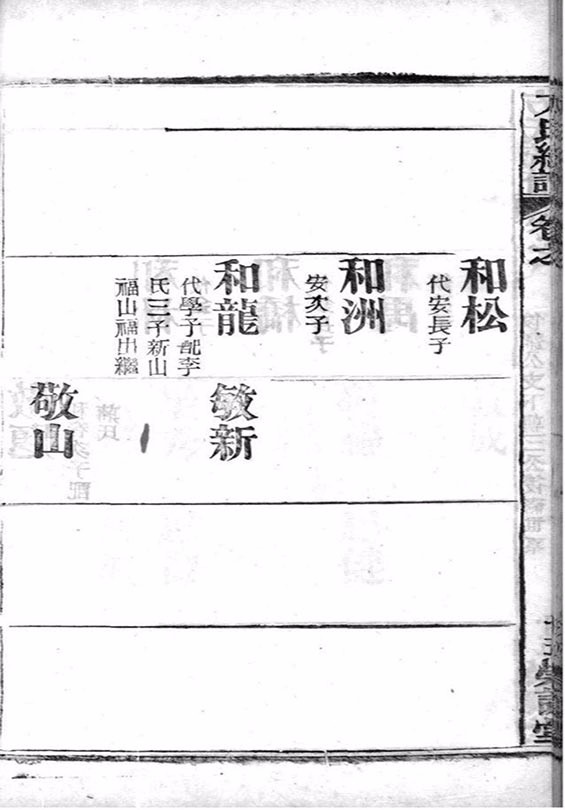 和松
代安長子
和洲
安次子
和龍
代學子配李
氏三子新山
福山福出繼
敏新
敬山